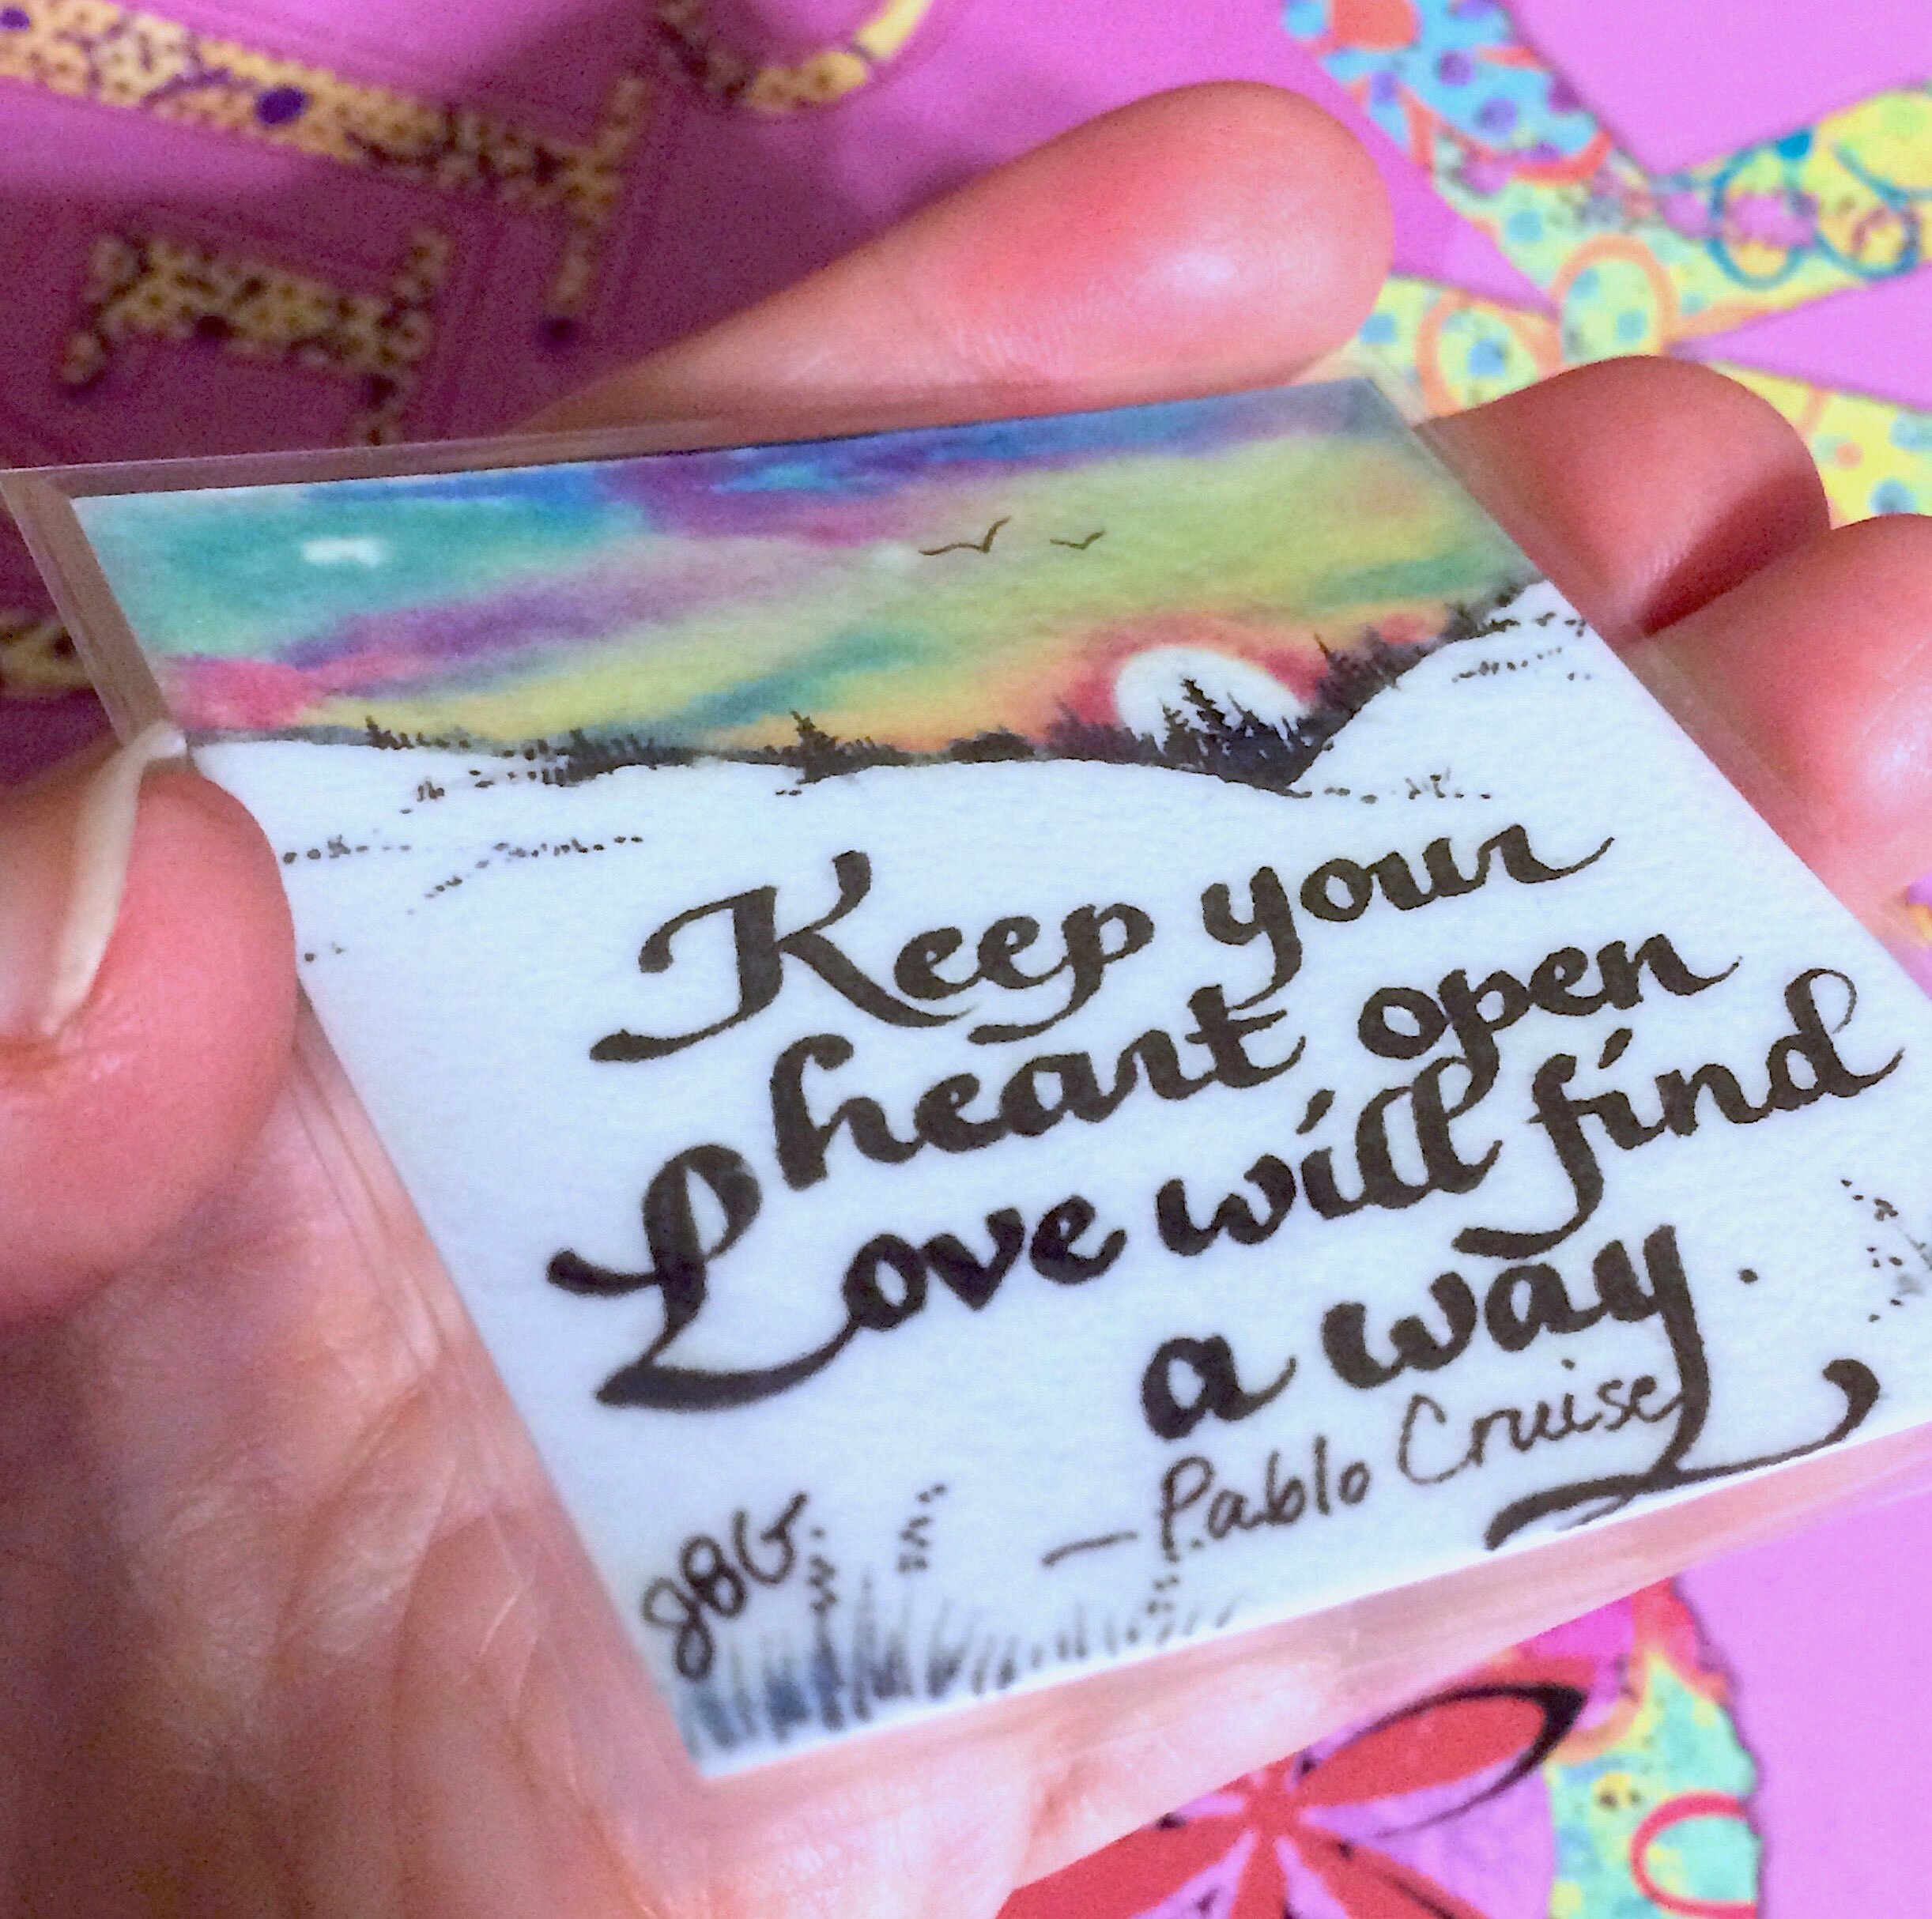 Keep your
heart open
Love will find
a way.
—Pablo Cruise
JBG.